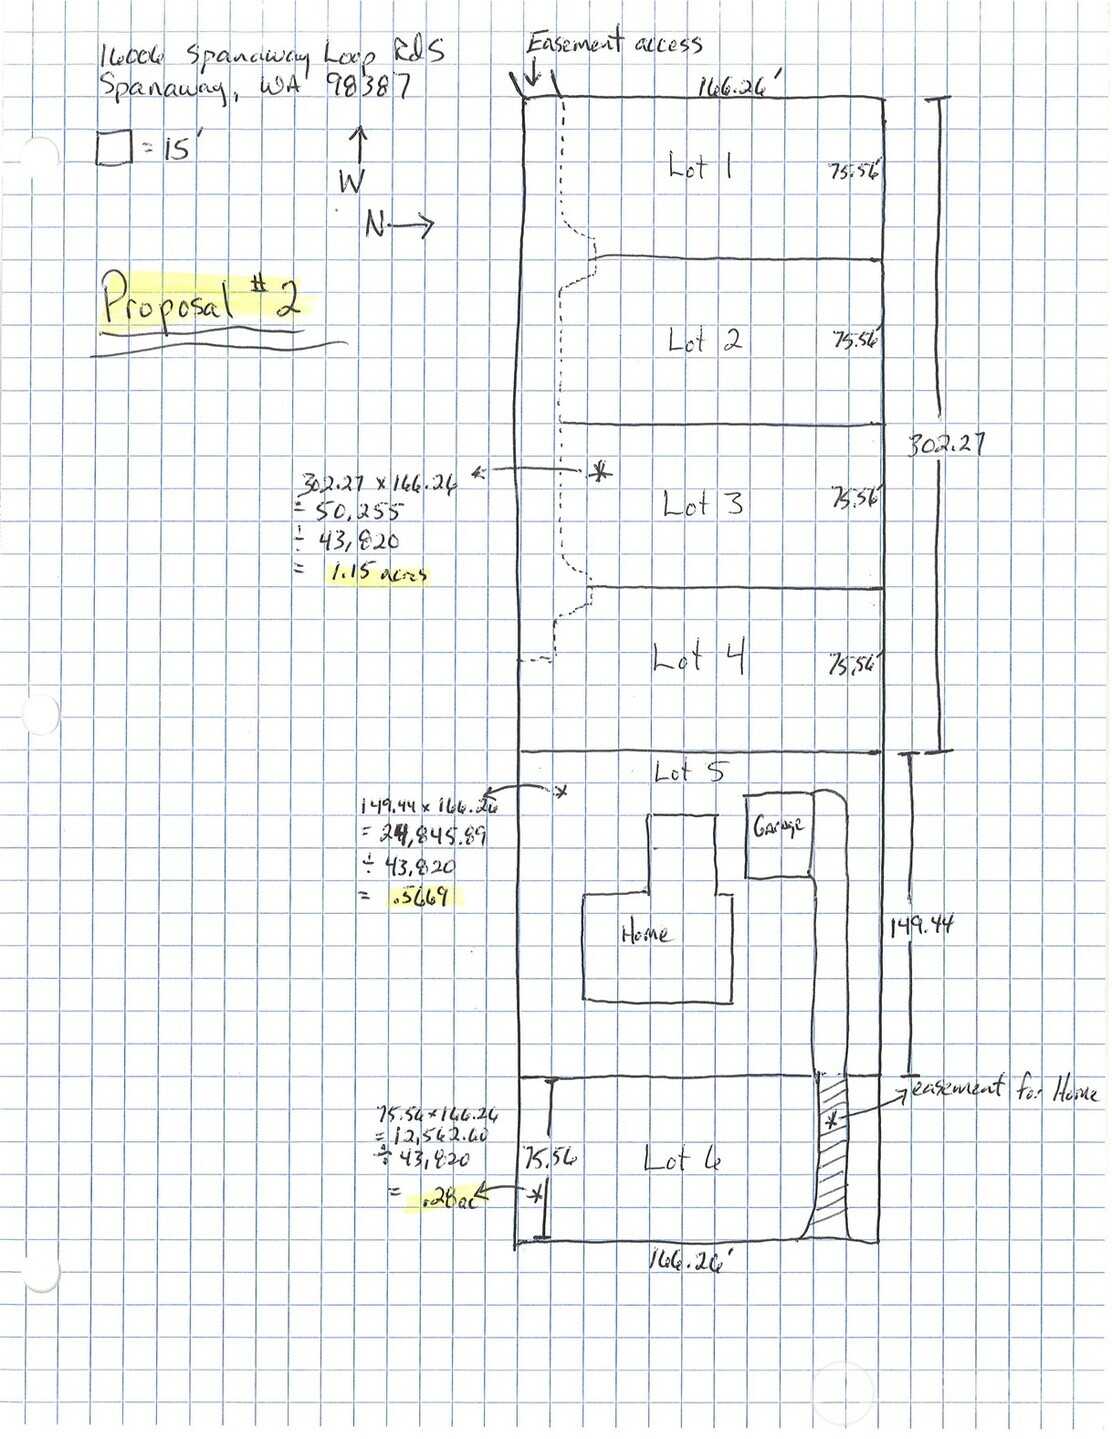 16006 Spanaway Loop Rd S
Spanaway, WA 98387
= 15'
W
N
Proposal #2
Easement access
166.26'
Lot 1
75.56'
Lot 2
75.56'
302.27
Lot 3
75.56'
302.27 x 166.26
= 50,255
÷ 43,820
= 1.15 acres
*
Lot 4
75.56'
Lot 5
149.44 x 166.26
= 24,845.89
÷ 43,820
= .5669
*
Garage
Home
149.44
easement for Home
*
75.56 x 166.26
= 12,562.60
÷ 43,820
= .28ac
*
75.56
Lot 6
166.26'